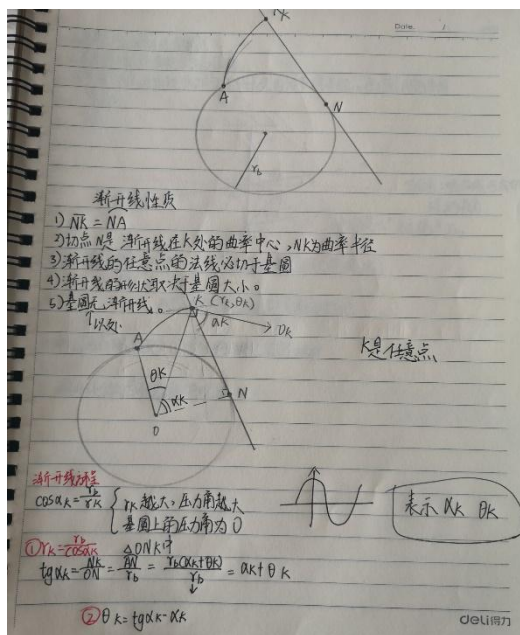 K
Date. /
A
N
rb
渐开线性质
1) NK = NA
2) 切点N是渐开线在K处的曲率中心,NK为曲率半径
3) 渐开线的任意点的法线必切于基圆
4) 渐开线的形状取决于基圆大小。
5) 基圆无渐开线。
↑以内
K (rk,θK)
αK
υK
A
θK
αK
N
O
K是任意点
渐开线方程
cosαK = rb/rK { rK越大,压力角越大
基圆上的压力角为0
表示 αK θK
① rK = rb/cosαK △ONK中
tgαK = NK/ON = AN/rb = rb(αK+θK)/rb = αK+θK
② θK = tgαK-αK
deli得力